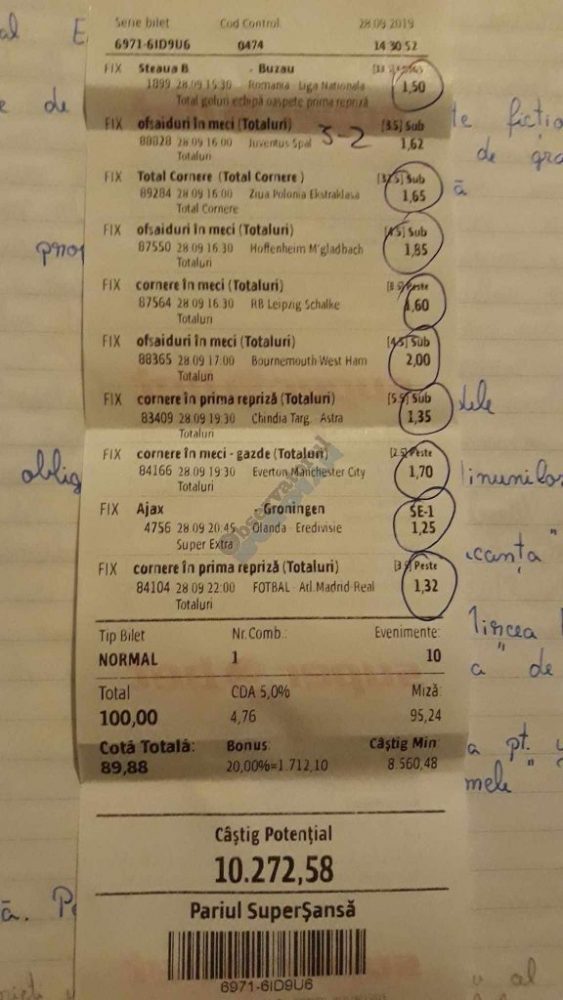 Serie bilet Cod Control 28.09 2019
6971-6ID9U6 0474 14 30 52
FIX Steaua B - Buzau
1899 28.09 15:30 Romania Liga Nationala 1,50
Total goluri echipă oaspete prima repriză
FIX ofsaiduri în meci (Totaluri) 3-2 [3.5] Sub
88828 28.09 16:00 Juventus Spal 1,62
Totaluri
FIX Total Cornere (Total Cornere) Sub
89284 28.09 16:00 Ziua Polonia Ekstraklasa 1,65
Total Cornere
FIX ofsaiduri în meci (Totaluri) [4.5] Sub
87550 28.09 16.30 Hoffenheim M'gladbach 1,85
Totaluri
FIX cornere în meci (Totaluri) Peste
87564 28.09 16.30 RB Leipzig Schalke 1,60
Totaluri
FIX ofsaiduri în meci (Totaluri) [4.5] Sub
88365 28.09 17:00 Bournemouth West Ham 2,00
Totaluri
FIX cornere în prima repriză (Totaluri) [5.5] Sub
83409 28.09 19:30 Chindia Targ. Astra 1,35
Totaluri
FIX cornere în meci - gazde (Totaluri) [2.5] Peste
84166 28.09 19:30 Everton Manchester City 1,70
Totaluri
FIX Ajax - Groningen SE-1
4756 28.09 20:45 Olanda - Eredivisie 1,25
Super Extra
FIX cornere în prima repriză (Totaluri) Peste
84104 28.09 22:00 FOTBAL - Atl.Madrid-Real 1,32
Totaluri
Tip Bilet Nr.Comb.: Evenimente:
NORMAL 1 10
Total CDA 5,0% Miză:
100,00 4,76 95,24
Cotă Totală: Bonus: Câștig Min
89,88 20,00%=1.712,10 8.560,48
Câștig Potențial
10.272,58
Pariul SuperȘansă
6971-6ID9U6